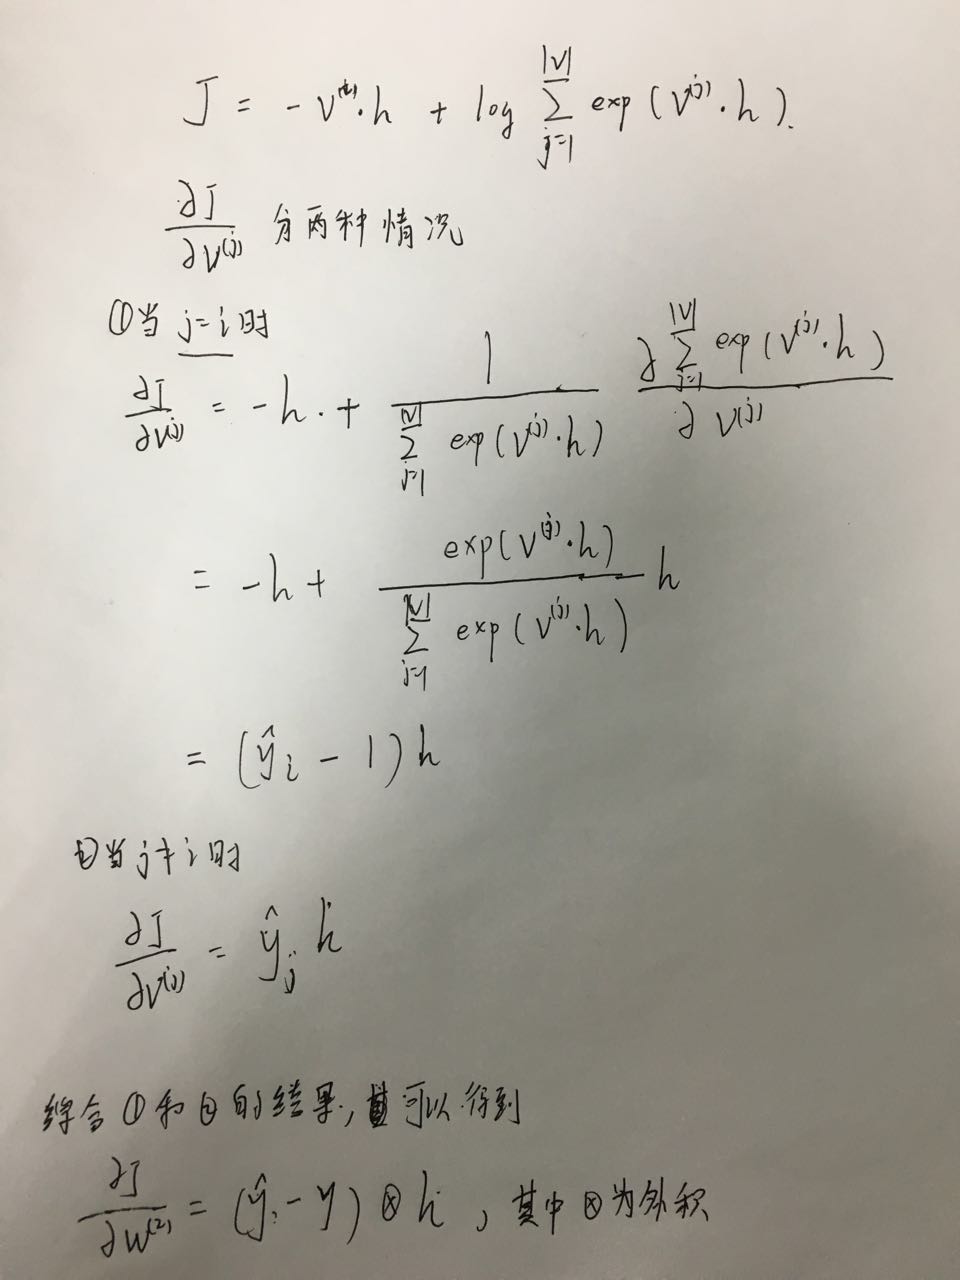 J = - v⁽ⁱ⁾·h + log ∑_{j=1}^{|V|} exp(v⁽ʲ⁾·h).
∂J/∂v⁽ʲ⁾ 分两种情况
①当 j=i 时
∂J/∂v⁽ʲ⁾ = -h·+ 1/(∑_{j=1}^{|V|} exp(v⁽ʲ⁾·h)) ∂∑_{j=1}^{|V|} exp(v⁽ʲ⁾·h)/∂v⁽ʲ⁾
= -h + exp(v⁽ʲ⁾·h)/(∑_{j=1}^{|V|} exp(v⁽ʲ⁾·h)) h
= (ŷ_i - 1)h
②当 j≠i 时
∂J/∂v⁽ʲ⁾ = ŷ_j h
综合①和②的结果, 可以得到
∂J/∂W⁽²⁾ = (ŷ - y) ⊗ h , 其中⊗为外积